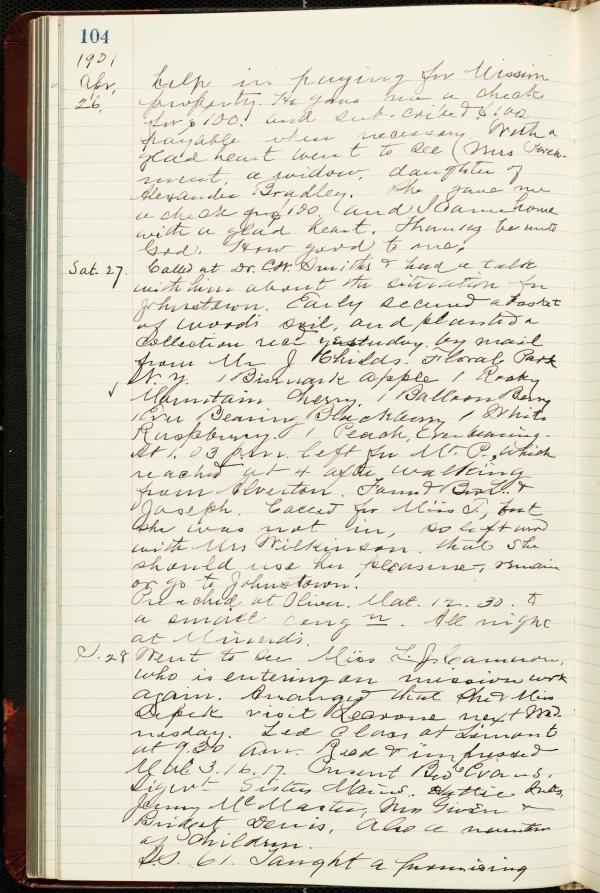 104
1901
Apr. 26. help in paying for Mission
property. He gave me a check
for $100. and subscribed $100
payable when necessary. With a
glad heart went to see (Mrs
a widow, daughter of
Alexander Bradley. She gave me
a check for $100. and I came home
with a glad heart. Thanks be unto
God. How good to me.
Sat. 27. Called at Dr. C.W. Smith's & had a talk
with him about the situation in
Johnstown. Early secured a basket
of woods soil, and planted a
collection rec'd yesterday by mail
from Mr J Childs. Floral Park
N.Y. 1 Bismark apple 1 Rocky
Mountain Cherry. 1 Balloon Berry
1 Ever Bearing Blackberry 1 White
Raspberry. 1 Peach, Everbearing.
At 1.03 p.m. left for Mt. P. which
reached at 4 after walking
from Alverton. Found Bro. L. &
Joseph. Called for Miss T, but
she was not in, so left word
with Mrs Wilkinson. that she
should use her pleasure, remain
or go to Johnstown.
Preached at Olive. Mat. 12.30. to
a small cong'n. All night
at Minerds.
S. 28 Went to see Miss L. J. Cameron,
who is entering on mission work
again. Arranged that she & Miss
visit next Wed-
nesday. Led class at Lemont
at 9.30 a.m. Read & impressed
Mal. 3.16.17. Present Bro Evans,
Sisters Mains,
Jenny McMaster, Mrs Given &
Bridget Denis, Also a number
of children.
S.S. 61. Taught a promising